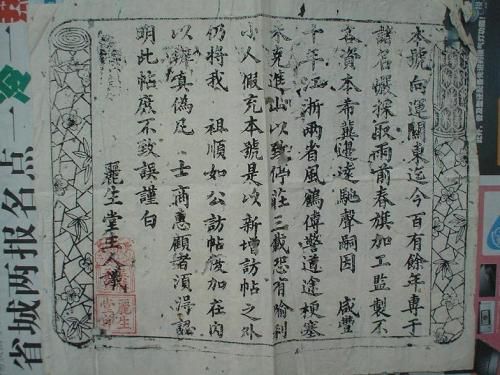 本號向運關東迄今百有餘年專于
諸名巖採取雨前春旗加工監製不
吝資本希冀邊逺馳聲嗣因 咸豐
十年江浙兩省風鶴傳警道途梗塞
未克進山以致停莊三載恐有偷利
小人假充本號是以新增訪帖之外
仍將我 祖順如公訪帖後加在內
以辨真偽凡 士商惠顧者須得認
明此帖庶不致誤謹白
麗生堂主人識
省城两报名点